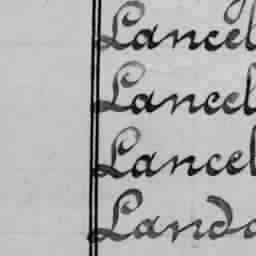 Lancel
Lancel
Lancel
Lando